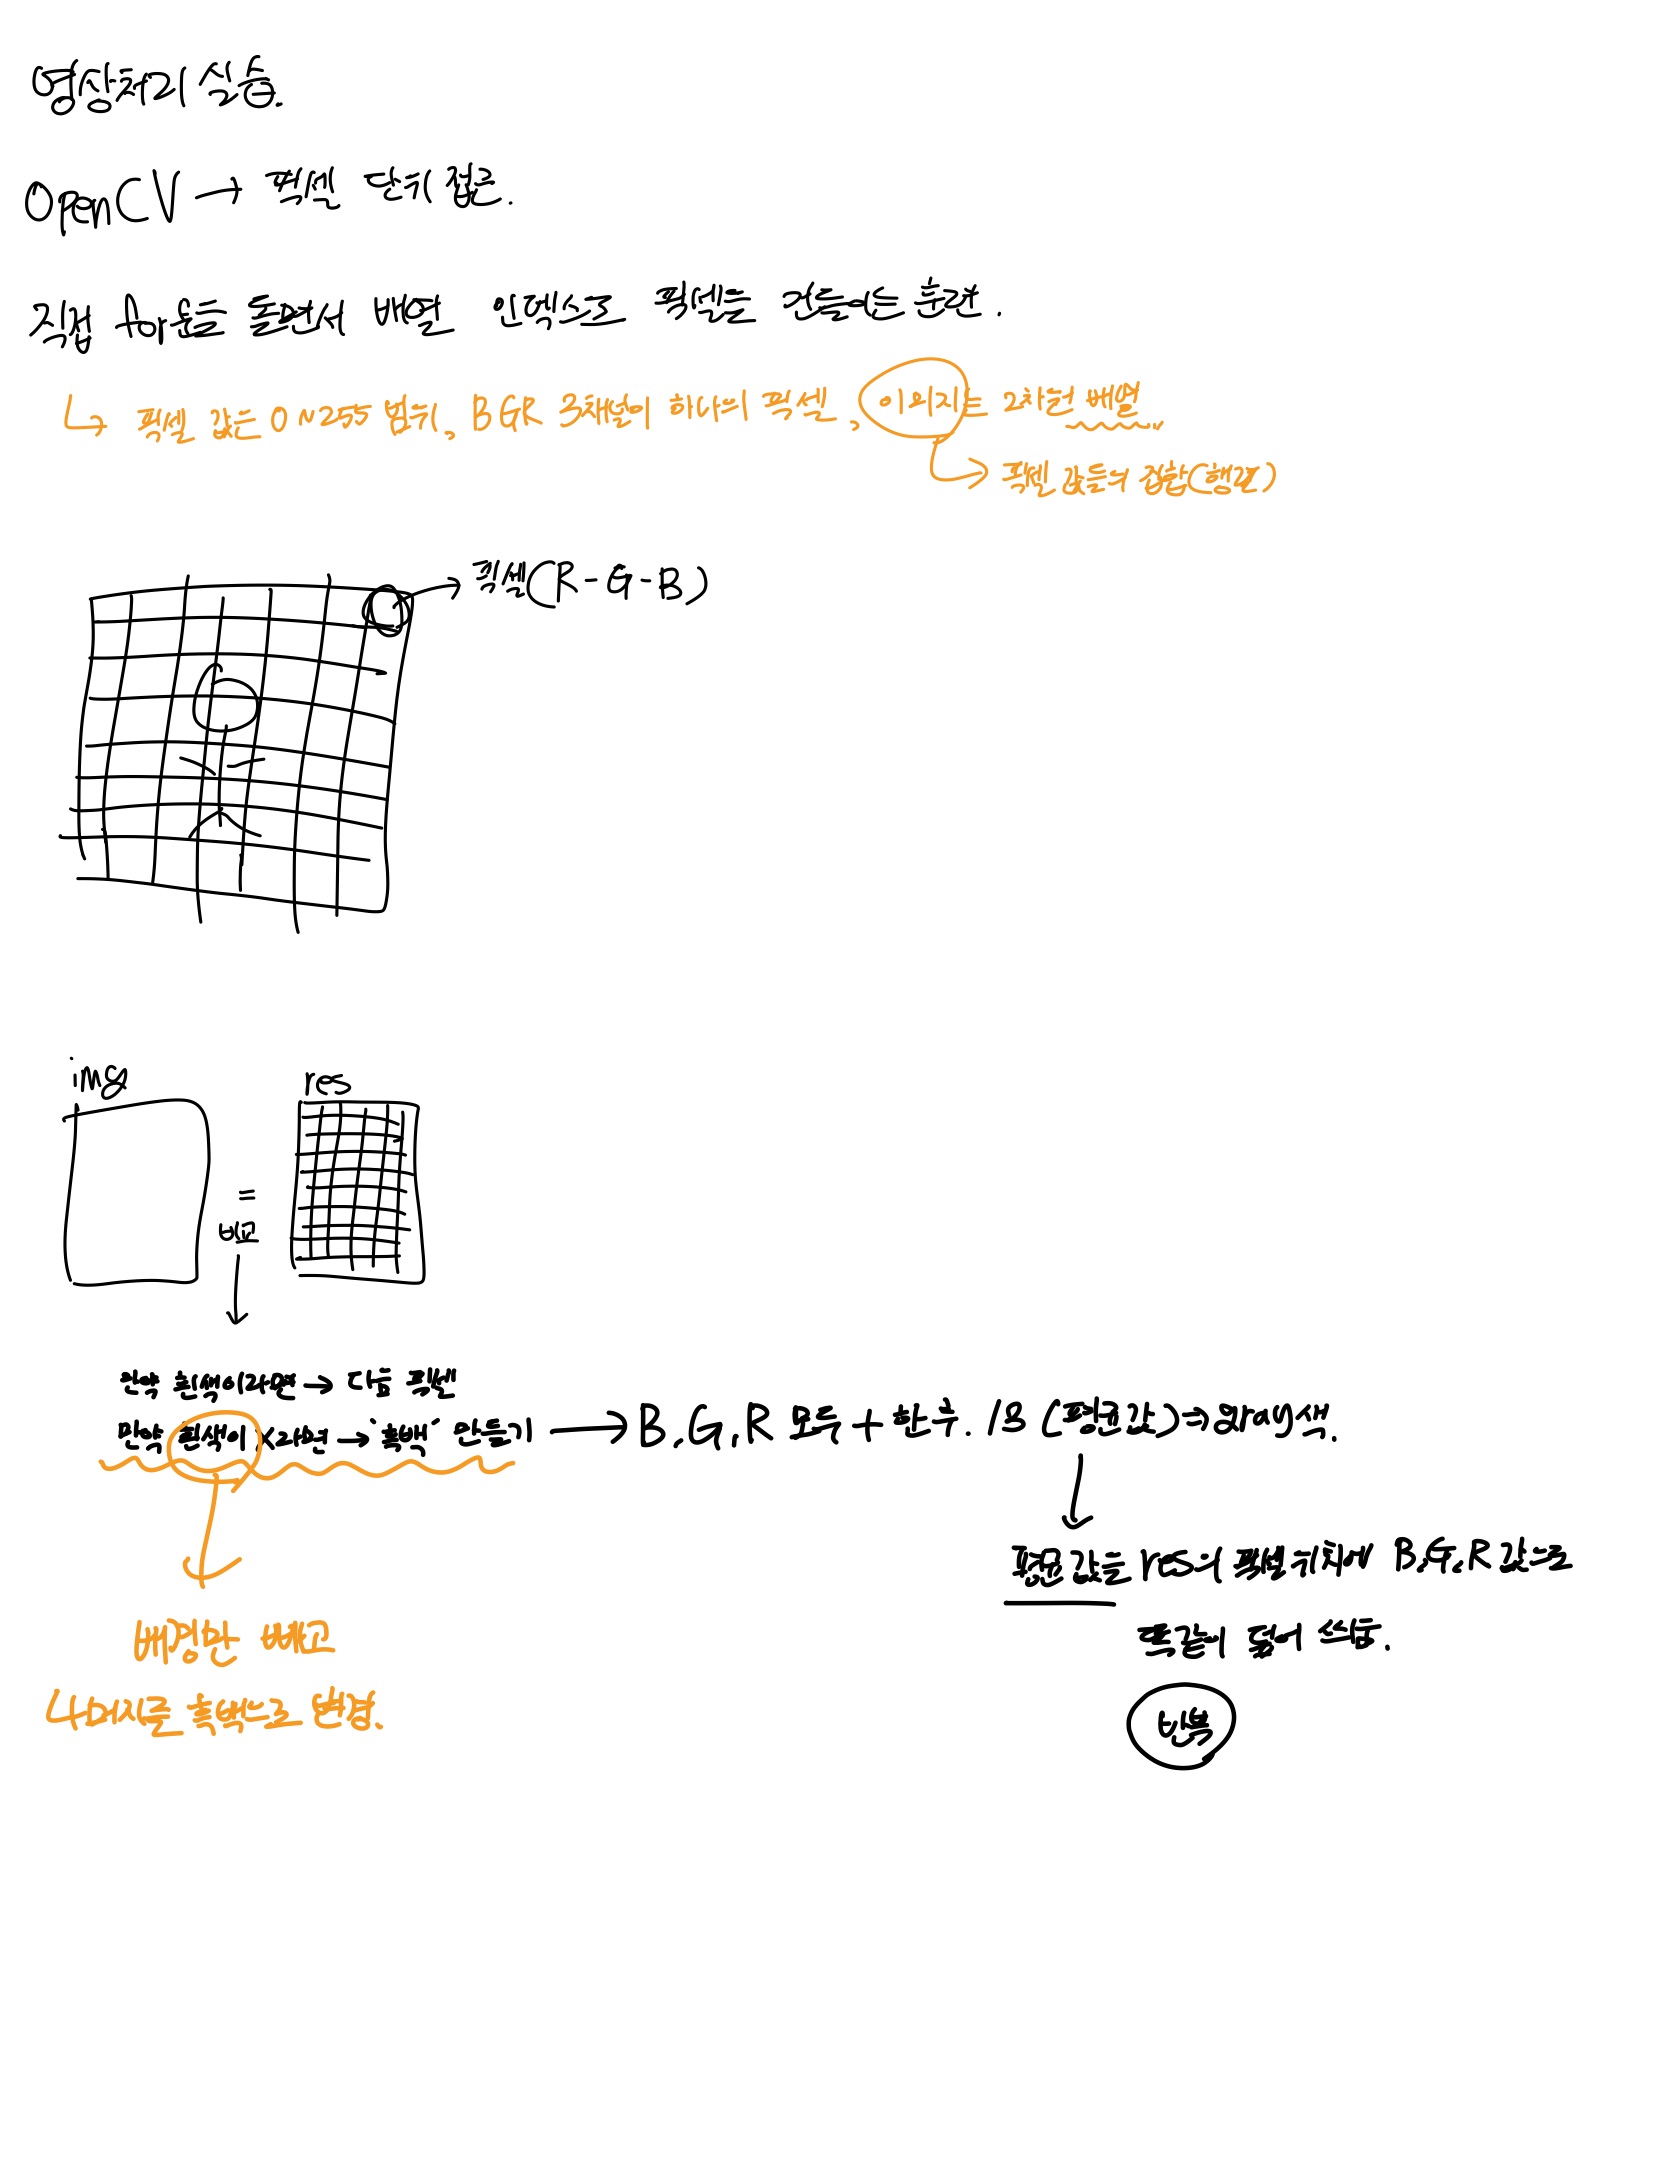 영상처리 실습.
OpenCV → 픽셀 단위 접근.
직접 for문을 돌면서 배열 인덱스로 픽셀을 건들이는 훈련.
↳ 픽셀 값은 0~255 범위, BGR 3채널이 하나의 픽셀, 이외지는 2차원 배열.
→ 픽셀 값들의 집합(행렬)
→ 픽셀(R-G-B)
img
res
=
비교
만약 흰색이라면 → 다음 픽셀
만약 흰색이 X라면 → '흑백' 만들기 → B,G,R 모두 + 한 후. /3 (평균값) ⇒ gray색.
평균값을 res의 픽셀 위치에 B,G,R 값으로
똑같이 덮어 씌움.
반복
배경만 빼고
나머지를 흑백으로 변경.